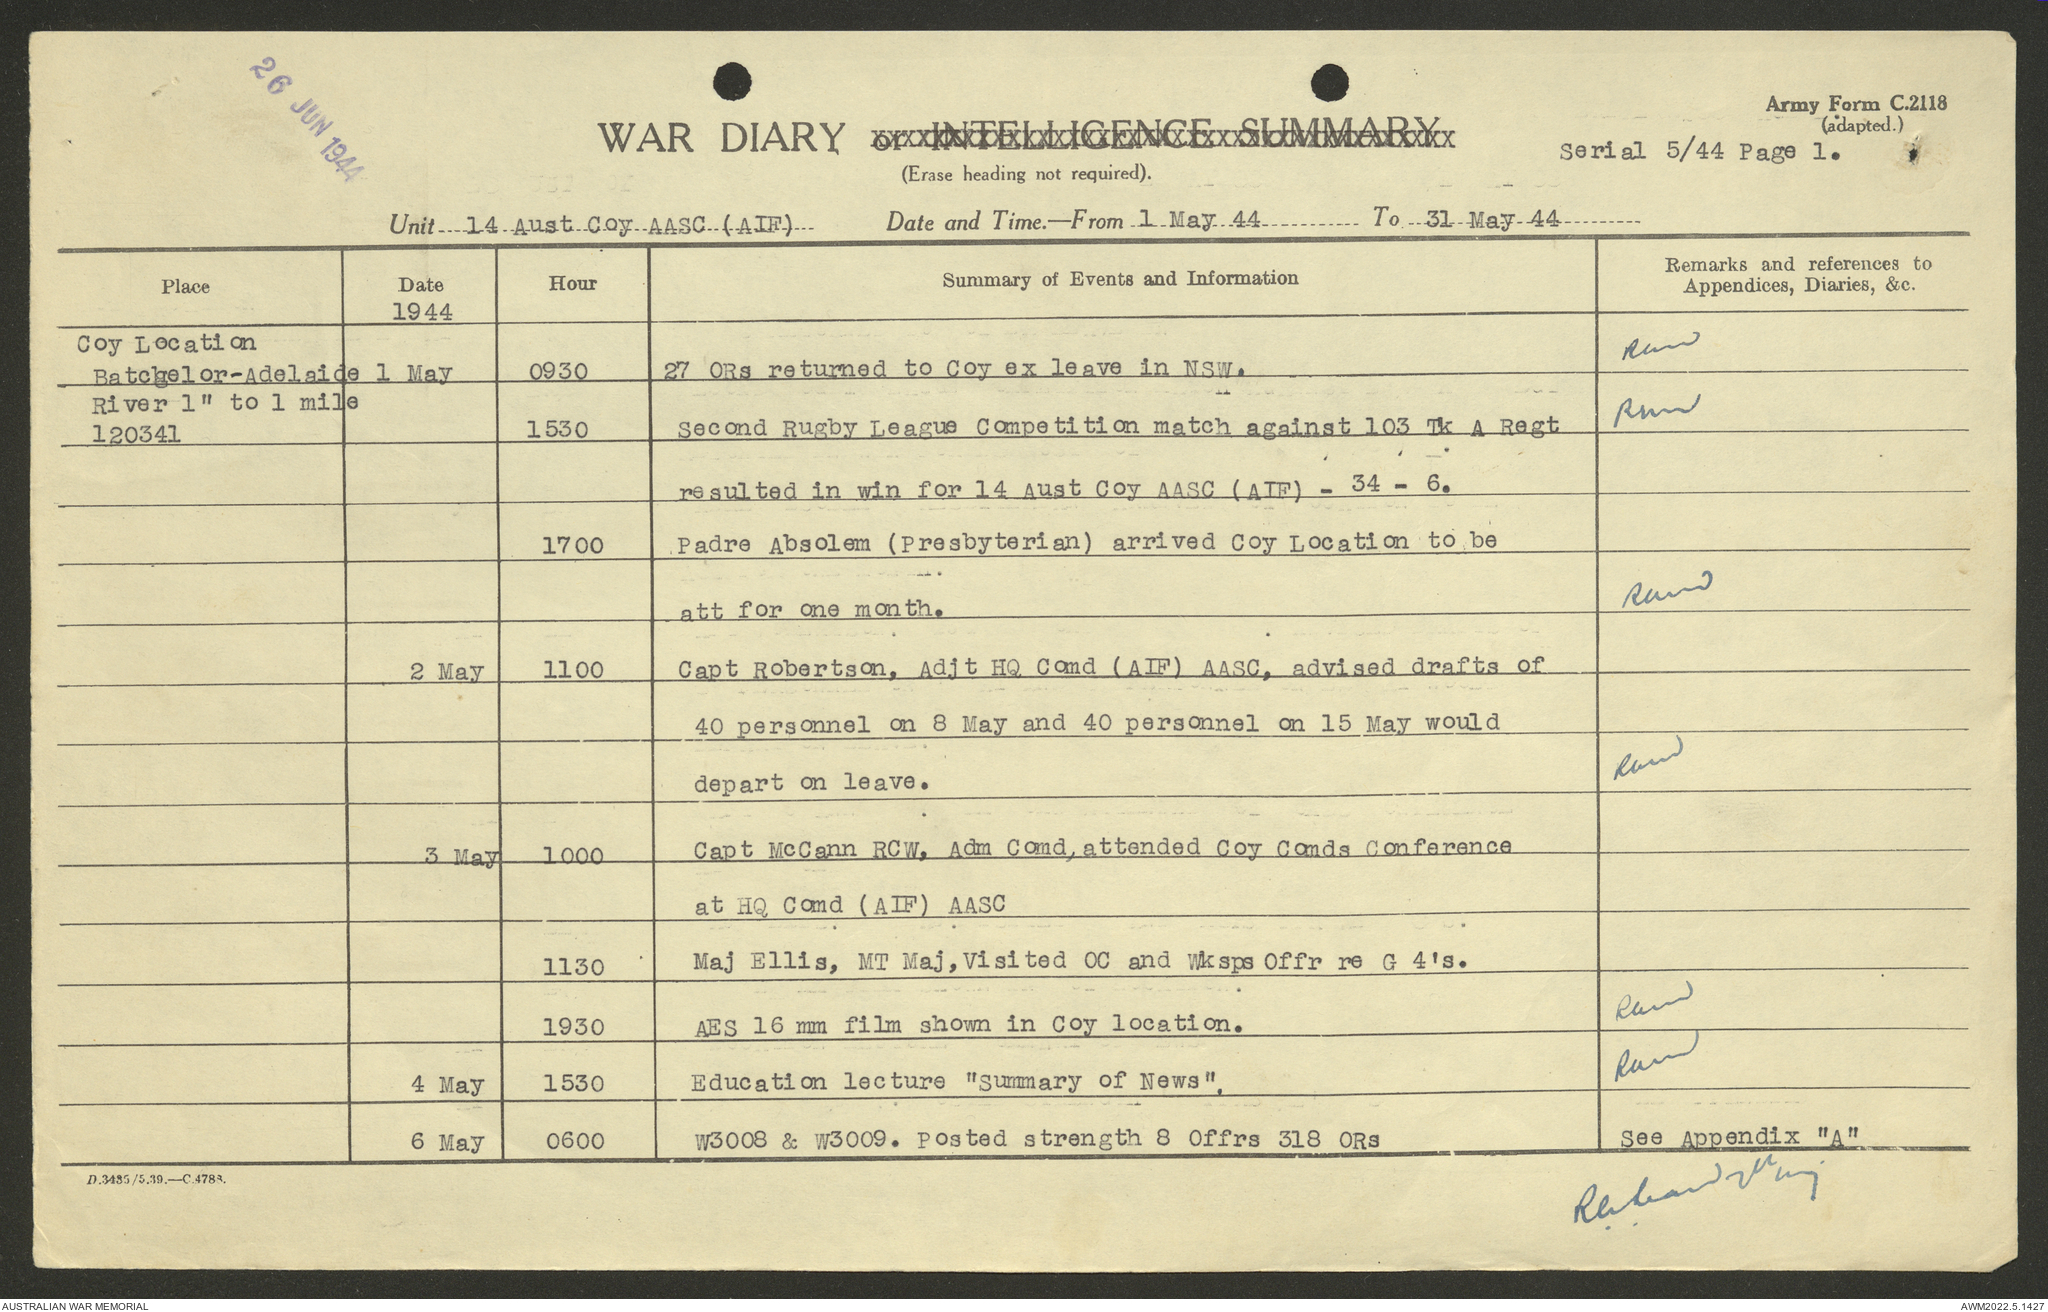 26 JUN 1944
Army Form C.2118
(adapted.)
WAR DIARY or INTELLIGENCE SUMMARY
Serial 5/44 Page 1.
(Erase heading not required).
Unit 14 Aust Coy AASC (AIF) Date and Time.—From 1 May 44 To 31 May 44
Place Date Hour Summary of Events and Information Remarks and references to
Appendices, Diaries, &c.
1944
Coy Location
Batchelor-Adelaide 1 May 0930 27 ORs returned to Coy ex leave in NSW.
River 1" to 1 mile
120341 1530 Second Rugby League Competition match against 103 Tk A Regt
resulted in win for 14 Aust Coy AASC (AIF) - 34 - 6.
1700 Padre Absolem (Presbyterian) arrived Coy Location to be
att for one month.
2 May 1100 Capt Robertson, Adjt HQ Comd (AIF) AASC, advised drafts of
40 personnel on 8 May and 40 personnel on 15 May would
depart on leave.
3 May 1000 Capt McCann RCW, Adm Comd, attended Coy Comds Conference
at HQ Comd (AIF) AASC
1130 Maj Ellis, MT Maj, Visited OC and Wksps Offr re G 4's.
1930 AES 16 mm film shown in Coy location.
4 May 1530 Education lecture "Summary of News".
6 May 0600 W3008 & W3009. Posted strength 8 Offrs 318 ORs See Appendix "A"
D.3485/5.39.—C.4788.
AUSTRALIAN WAR MEMORIAL
AWM2022.5.1427